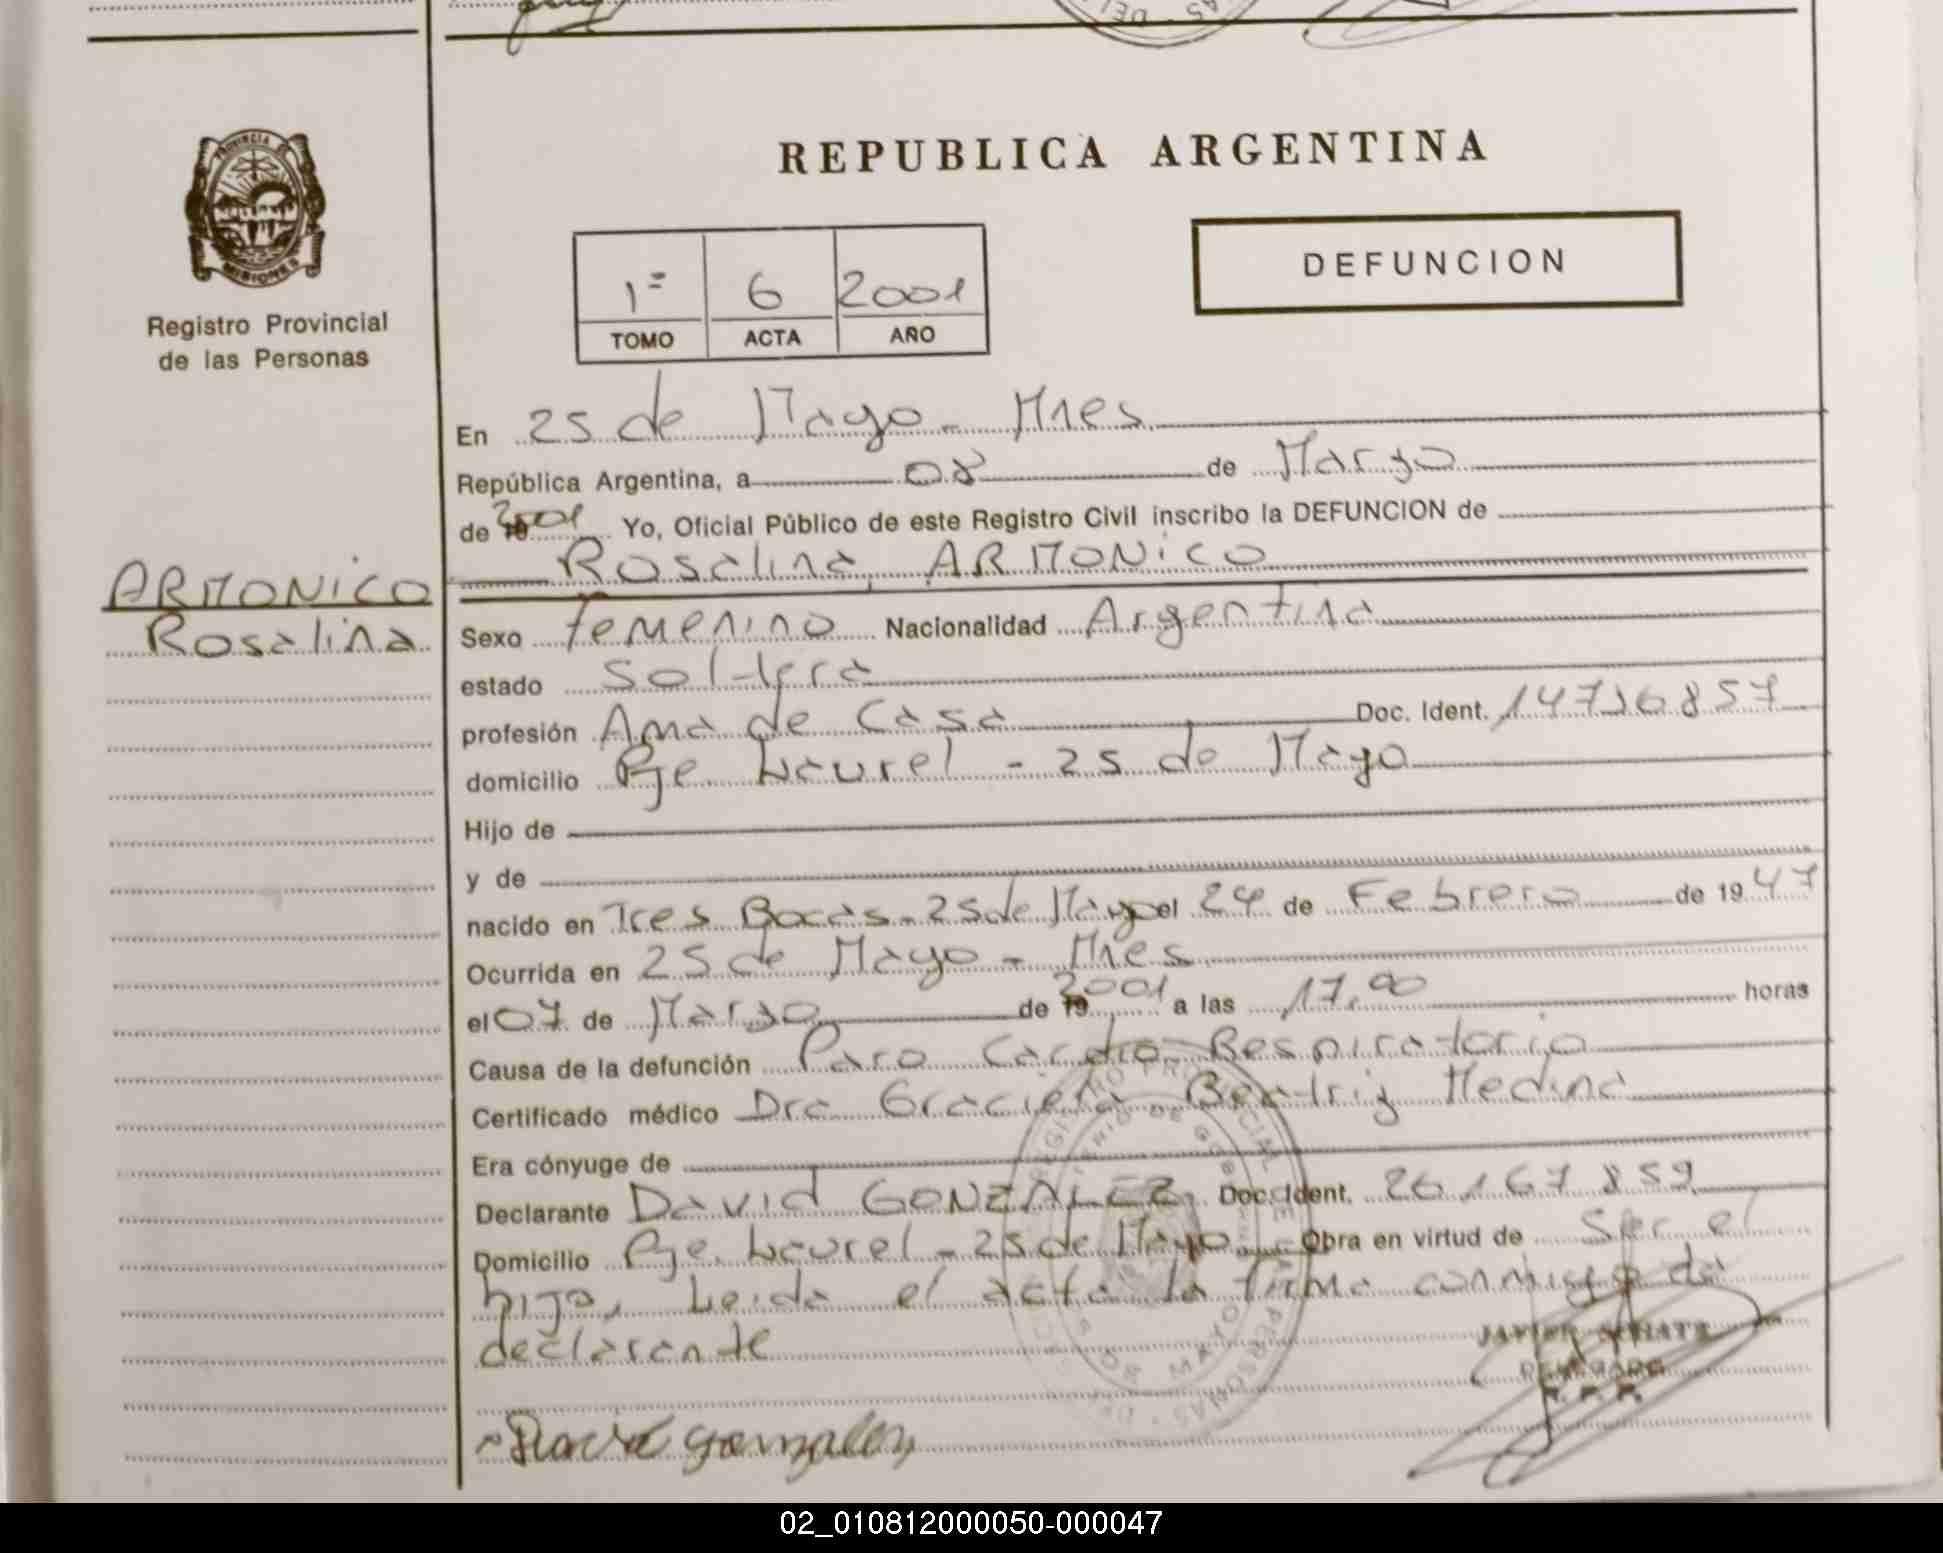 REPUBLICA ARGENTINA
PROVINCIA DE
MISIONES
Registro Provincial
de las Personas
DEFUNCION
1= 6 2001
TOMO ACTA AÑO
En 25 de Mayo - Mnes
República Argentina, a 08 de Marzo
de 19 2001 Yo, Oficial Público de este Registro Civil inscribo la DEFUNCION de
Rosalina, ARMONiCO
ARMONiCO
Rosalina
Sexo femenino Nacionalidad Argentina
estado Soltera
profesión Ama de Casa Doc. Ident. 14.716.857
domicilio Pje. Laurel - 25 de Mayo
Hijo de
y de
nacido en Tres Bocas - 25 de Mayo el 24 de Febrero de 19 47
Ocurrida en 25 de Mayo - Mnes
el 07 de Marzo de 19 2001 a las 17,00 horas
Causa de la defunción Paro Cardio Respiratorio
Certificado médico Dra Graciela Beatriz Medina
Era cónyuge de
Declarante David GONZALEZ, Doc. Ident. 26.167.859
Domicilio Pje. Laurel - 25 de Mayo Obra en virtud de Ser el
hijo, Leida el acta la firma conmigo da
declarante
JAVIER
R.P.P.
David gonzalez
02_010812000050-000047